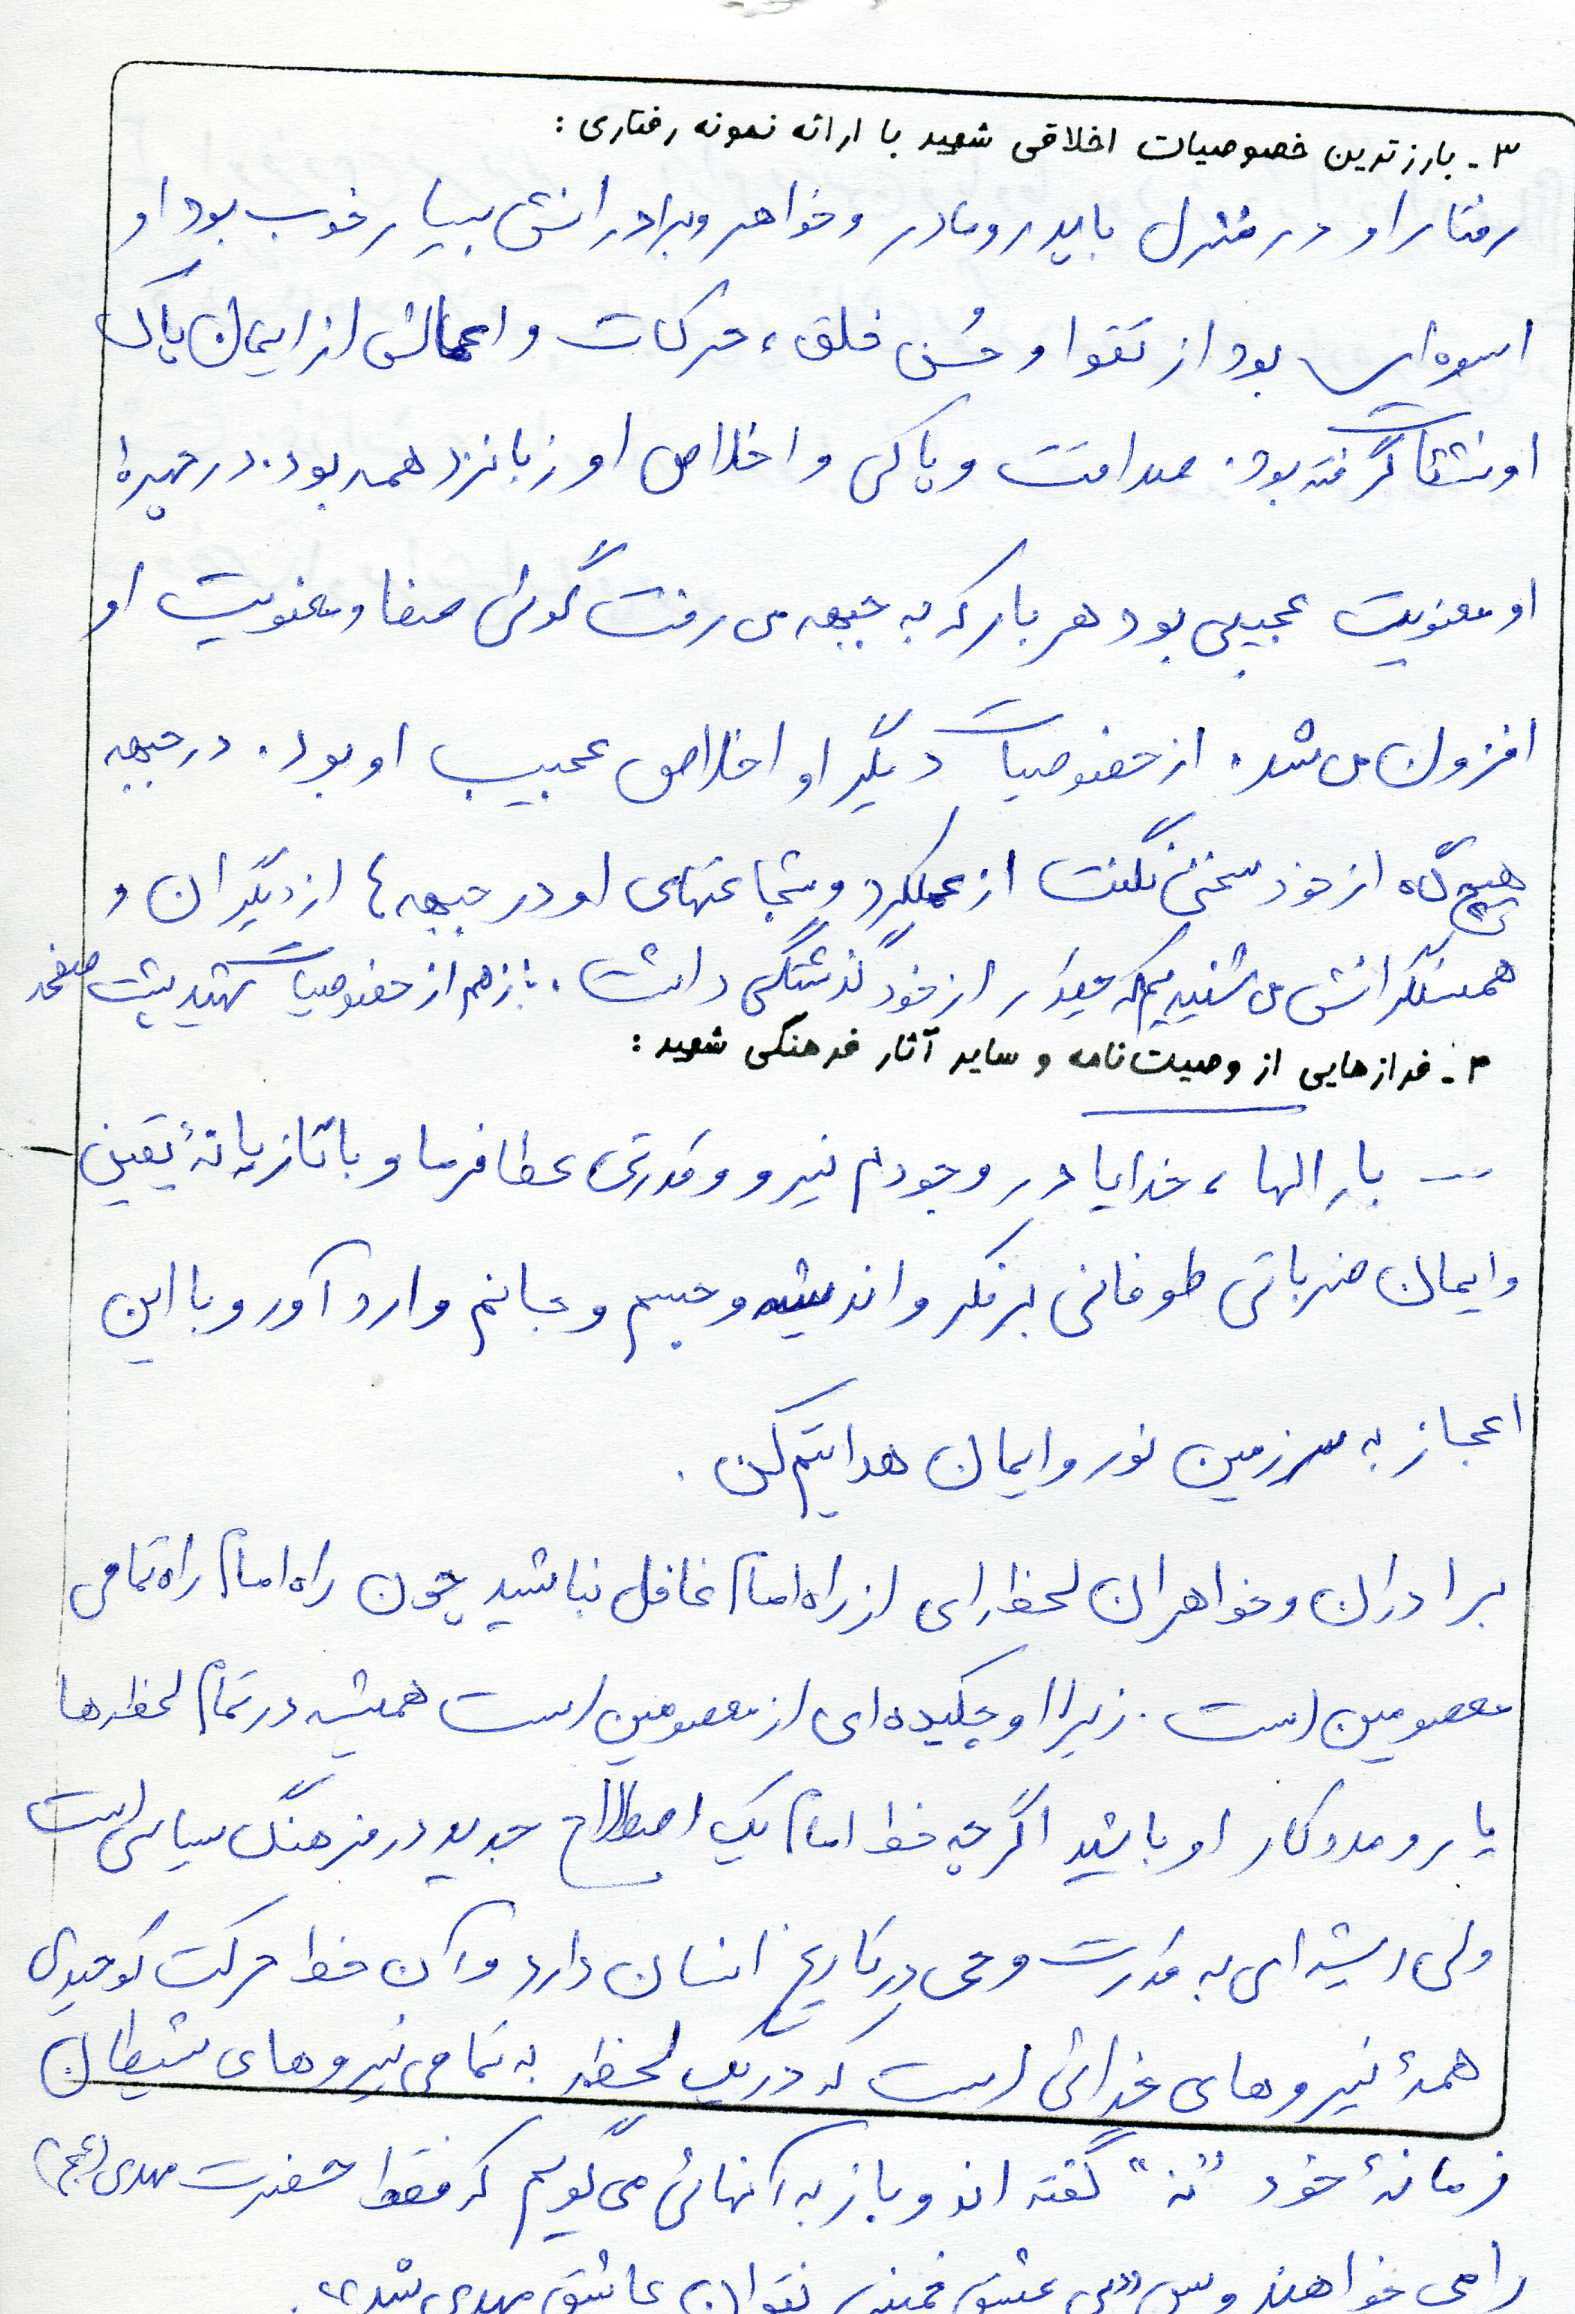 ۳ - بارزترین خصوصیات اخلاقی شهید با ارائه نمونه رفتاری :
رفتار او در منزل با پدر و مادر و خواهر و برادرانش بسیار خوب بود او
اسوه‌ای بود از تقوا و حُسن خلق ، حرکات و اعمالش از ایمان پاک
او نشئت گرفته بود . صداقت و پاکی و اخلاص او زبانزد همه بود . در چهرهٔ
او معنویت عجیبی بود هر بار که به جبهه می رفت گوئی صفا و معنویت او
افزون می شد . از خصوصیات دیگر او اخلاص عجیب او بود . در جبهه
هیچ گاه از خود سخن نگفت از عملکرد و شجاعتهای او در جبهه ها از دیگران و
همسنگرانش می شنیدیم که چقدر از خود گذشتگی داشت . باز هم از خصوصیات شهید پشت صفحه
۴ - فرازهایی از وصیت‌نامه و سایر آثار فرهنگی شهید :
... بار الها ، خدایا در وجودم نیرو و قدرتی عطا فرما و با تازیانهٔ یقین
و ایمان ضرباتی طوفانی بر فکر و اندیشه و جسم و جانم وارد آور و با این
اعجاز به سرزمین نور و ایمان هدایتم کن .
برادران و خواهران لحظه‌ای از راه امام غافل نباشید چون راه امام راه تمامی
معصومین است . زیرا او چکیده‌ای از معصومین است همیشه در تمام لحظه‌ها
یار و مددکار او باشید اگر چه خط امام یک اصطلاح جدید در فرهنگ سیاسی است
ولی ریشه‌ای به قدرت وحی در تاریخ انسان دارد و آن خط حرکت توحیدی
همهٔ نیروهای خدائی است که در یک لحظه به تمامی نیروهای شیطان
زمانهٔ خود "نه" گفته اند و باز به آنهائی می گویم که فقط حضرت مهدی (عج)
را می خواهند و بس «بی عشق خمینی نتوان عاشق مهدی شد» .